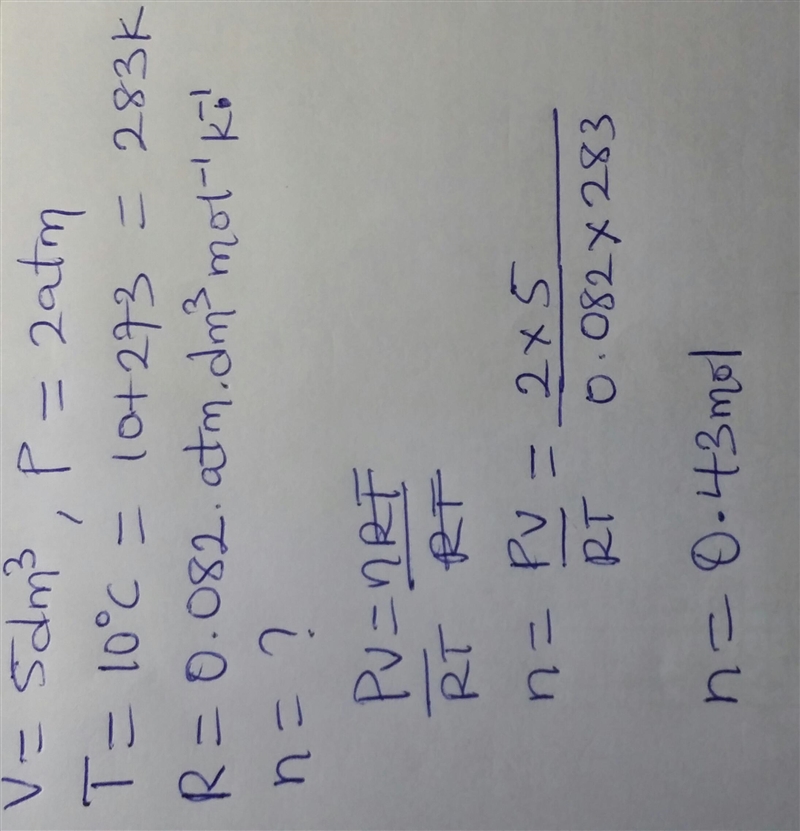 V = 5dm³, P = 2atm
T = 10°C = 10+273 = 283K
R = 0.082.atm.dm³mol⁻¹K⁻¹
n = ?
PV = nRT
RT RT
n = PV = 2 x 5
RT 0.082 x 283
n = 0.43mol